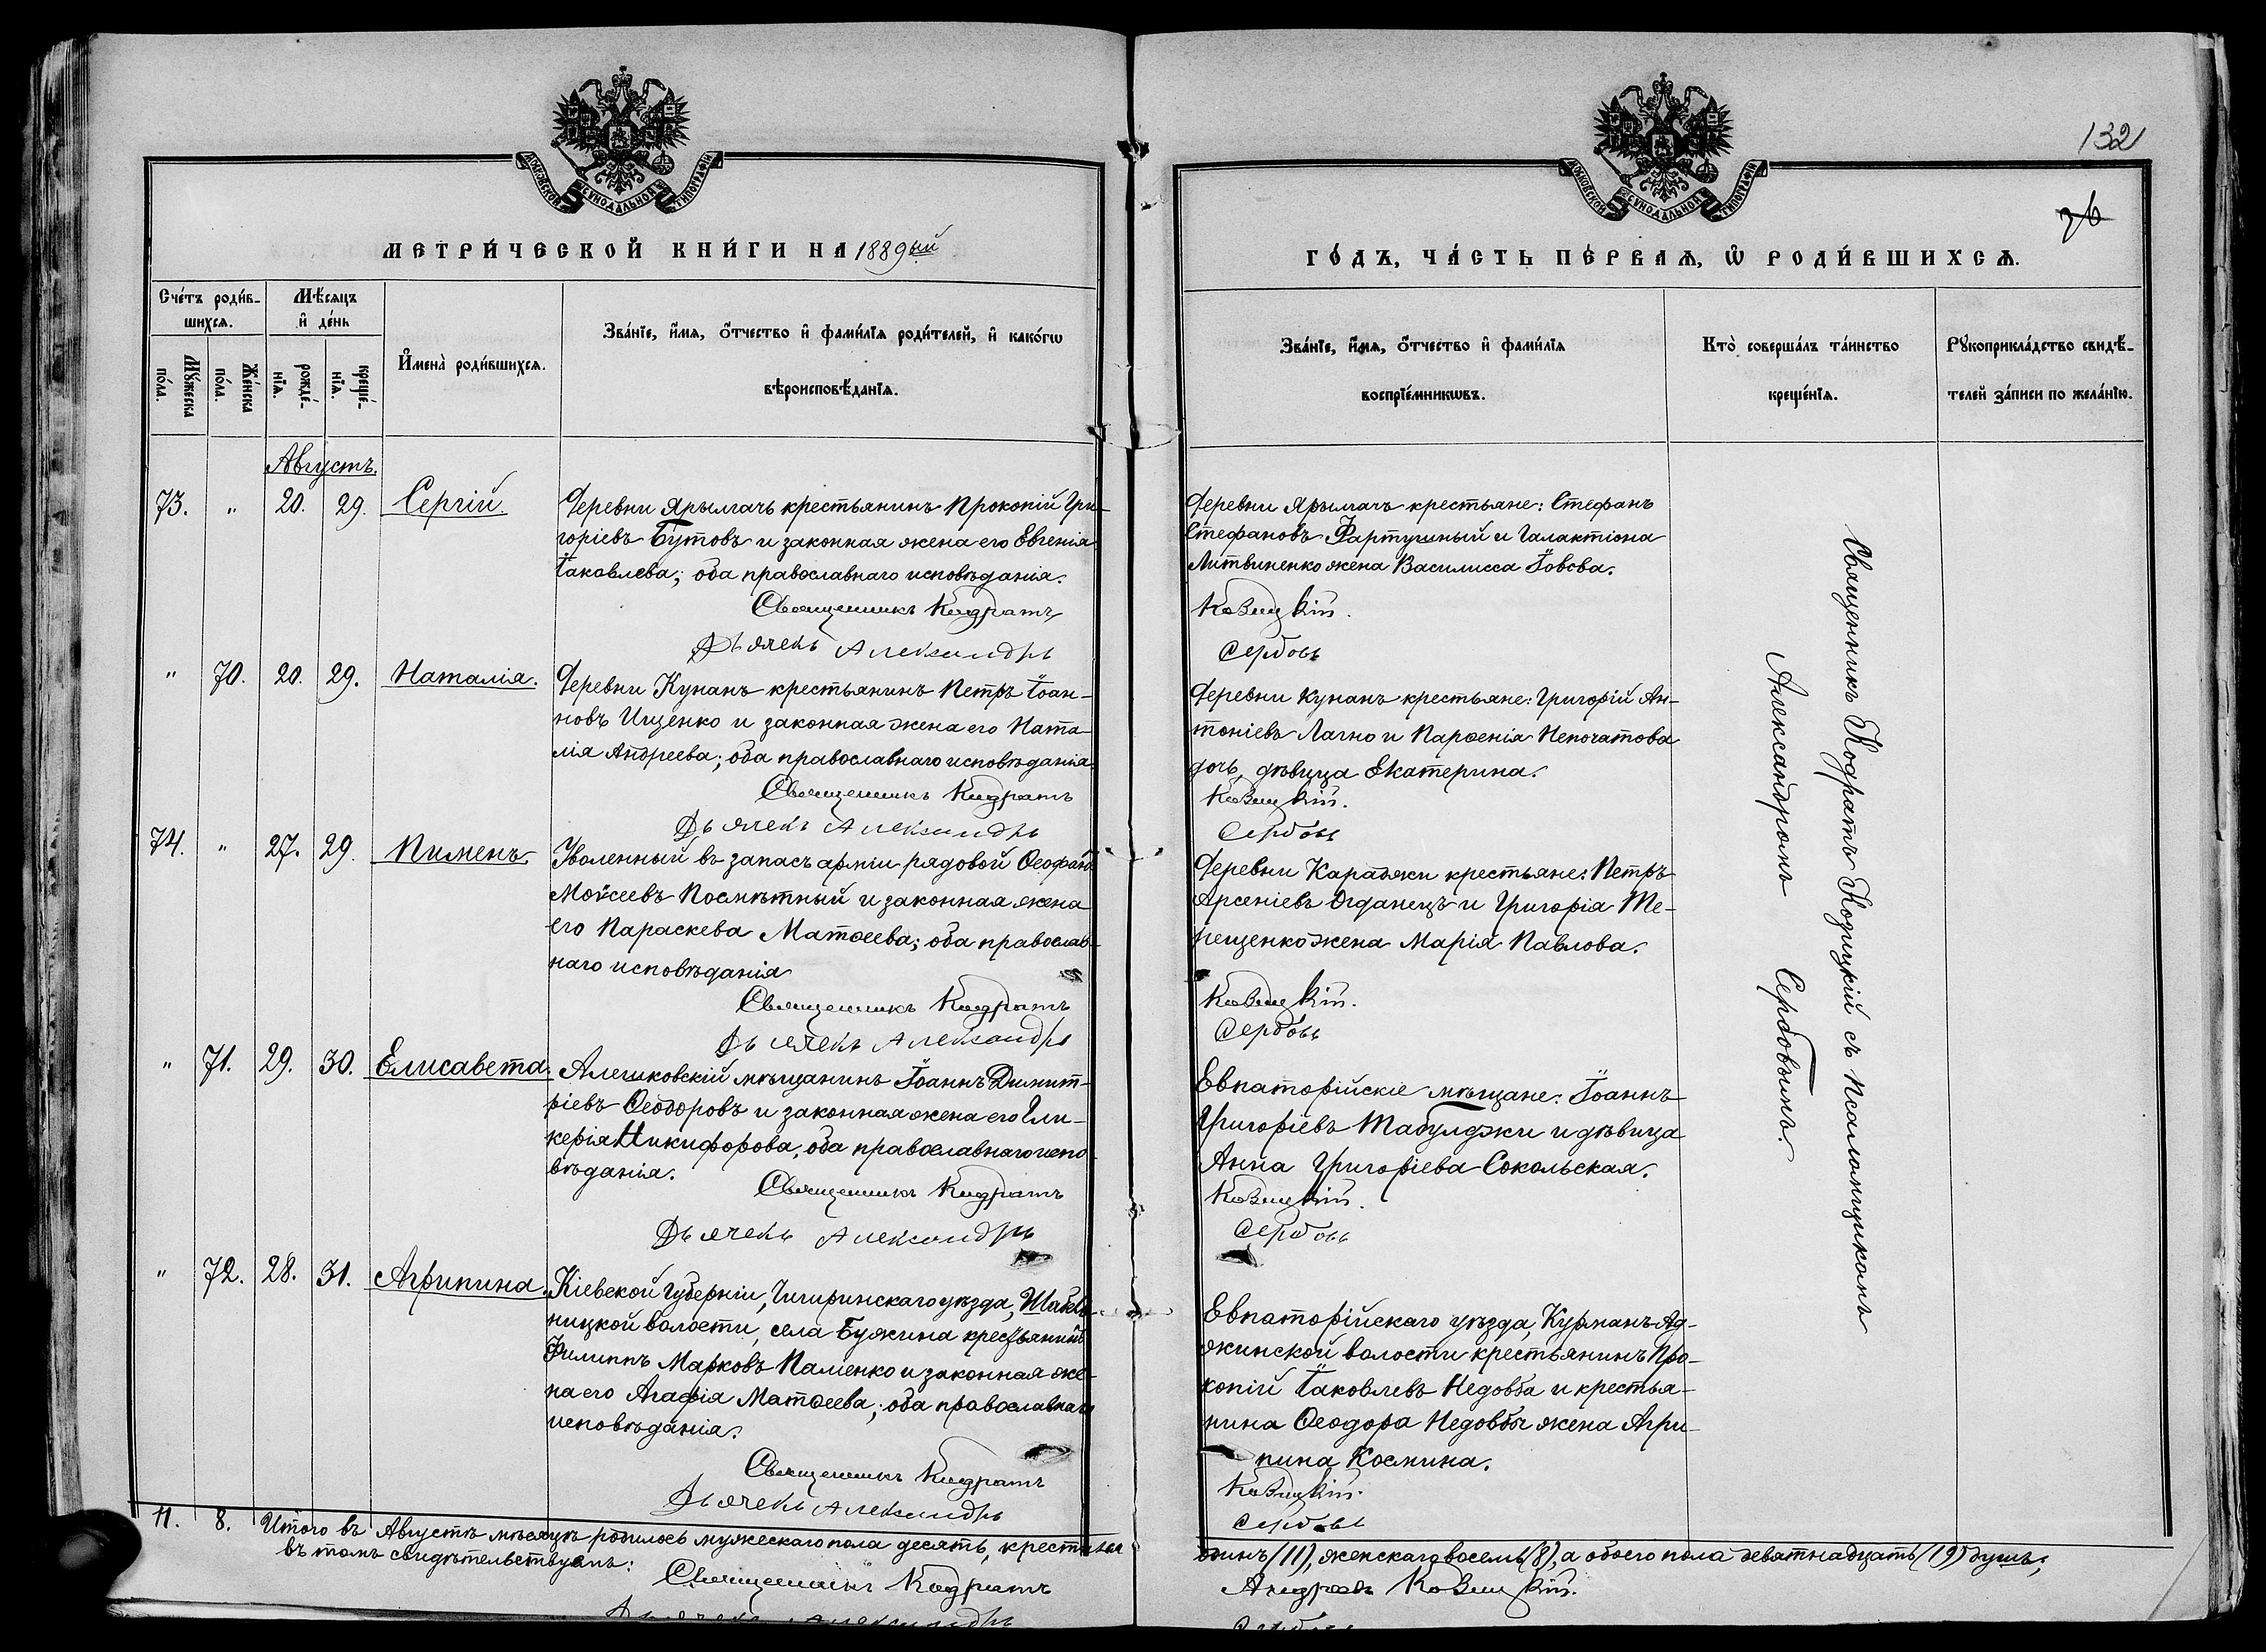 132
МОСКОВСКОЙ СѴНОДАЛЬНОЙ ТИПОГРАФІИ
МОСКОВСКОЙ СѴНОДАЛЬНОЙ ТИПОГРАФІИ
МЕТРИ́ЧЕСКОЙ КНИ́ГИ НА 1889ый
ГО́ДЪ, ЧА́СТЬ ПЕ́РВАѦ, Ѡ҆ РОДИ́ВШИХСѦ.
Сче́тъ роди́в-
шихсѧ.
Мѣ́сѧцъ
и҆ де́нь
Мꙋ́жеска
по́ла.
Же́нска
по́ла.
рожде́-
нїѧ.
креще́-
нїѧ.
И҆мена̀ роди́вшихсѧ.
Зва́нїе, и҆́мѧ, ѻ҆́тчество и҆ фами́лїѧ роди́телей, и҆ како́гѡ
вѣроисповѣ́данїѧ.
Зва́нїе, и҆́мѧ, ѻ҆́тчество и҆ фами́лїѧ
воспрїе́мникѡвъ.
Кто̀ соверша́лъ та́инство
креще́нїѧ.
Рꙋкоприкла́дство свидѣ́-
телей за́писи по жела́нїю.
Августъ.
73. " 20. 29. Сергій.
Деревни Ярылгачъ крестьянинъ Прокопій Гри-
горіевъ Бутовъ и законная жена его Евгенія
Іаковлева; оба православнаго исповѣданія.
Священникъ Кодратъ
Дьячекъ Александръ
Деревни Ярылгачъ крестьяне: Стефанъ
Стефановъ Фартушный и Галактіона
Литвиненко жена Василисса Іовова.
Козицкій.
Сербовъ
" 70. 20. 29. Наталія.
Деревни Кунанъ крестьянинъ Петръ Іоан-
новъ Ищенко и законная жена его Ната-
лія Андреева; оба православнаго исповѣданія.
Священникъ Кодратъ
Дьячекъ Александръ
Деревни Кунанъ крестьяне: Григорій Ан-
тоніевъ Лагно и Парѳенія Непочатова
дочь, дѣвица Екатерина.
Козицкій.
Сербовъ
74. " 27. 29. Пименъ.
Уволенный въ запасъ арміи рядовой Ѳеофанъ
Моѵсеевъ Посмѣтный и законная жена
его Параскева Матѳеева; оба православ-
наго исповѣданія
Священникъ Кодратъ
Дьячекъ Александръ
Деревни Караджи крестьяне: Петръ
Арсеніевъ Огданецъ и Григорія Те-
рещенко жена Марія Павлова.
Козицкій.
Сербовъ
" 71. 29. 30. Елисавета.
Алешковскій мѣщанинъ Іоаннъ Димит-
ріевъ Ѳеодоровъ и законная жена его Гли-
керія Никифорова, оба православнаго испо-
вѣданія.
Священникъ Кодратъ
Дьячекъ Александръ
Евпаторійскіе мѣщане: Іоаннъ
Григоріевъ Табулджи и дѣвица
Анна Григоріева Сокольская.
Козицкій.
Сербовъ
" 72. 28. 31. Агрипина.
Кіевской губерніи, Чигиринскаго уѣзда,
ницкой волости, села Бужина крестьянинъ
Филиппъ Марковъ Паліенко и законная же-
на его Агафія Матѳеева; оба православнаго
исповѣданія.
Священникъ Кодратъ
Дьячекъ Александръ
Евпаторійскаго уѣзда, Курманъ Ад-
жинской волости крестьянинъ Про-
копій Іаковлевъ Недовба и крестья-
нина Ѳеодора Недовбы жена Агри-
пина Космина.
Козицкій.
Сербовъ
Священникъ Кодратъ Козицкій съ Псаломщикомъ
Александромъ Сербовымъ.
11. 8. Итого въ Августѣ мѣсяцѣ родилось мужескаго пола десять, крестилъ
одинъ (11), женскаго восемь (8), а обоего пола девятнадцать (19) душъ;
въ томъ свидѣтельствуемъ:
Священникъ Кодратъ
Козицкій.
Дьячекъ Александръ
Сербовъ